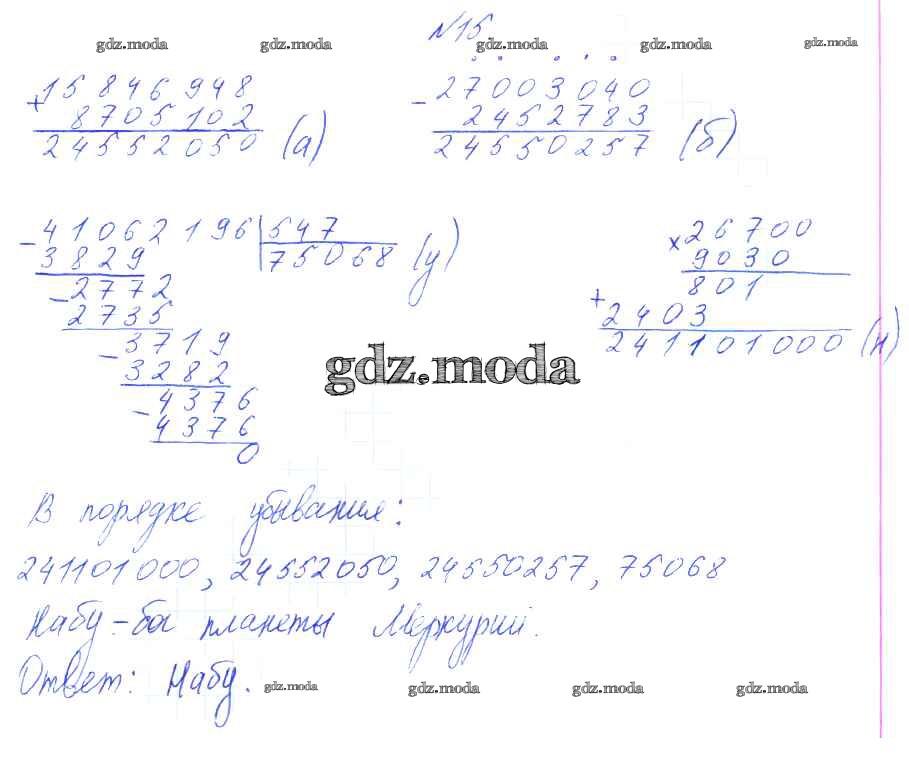 №15
gdz.moda gdz.moda gdz.moda gdz.moda
+ 15 846 948
8705 102
24552050 (а)
- 27003040
2452783
24550257 (б)
- 41062196 | 547
3829 | 75068 (у)
- 2772
2735
- 3719
3282
- 4376
4376
0
× 26700
9030
801
+ 2403
241101000 (н)
gdz.moda
В порядке убывания:
241101000, 24552050, 24550257, 75068
Набу - бог планеты Меркурий.
Ответ: Набу.
gdz.moda gdz.moda gdz.moda gdz.moda